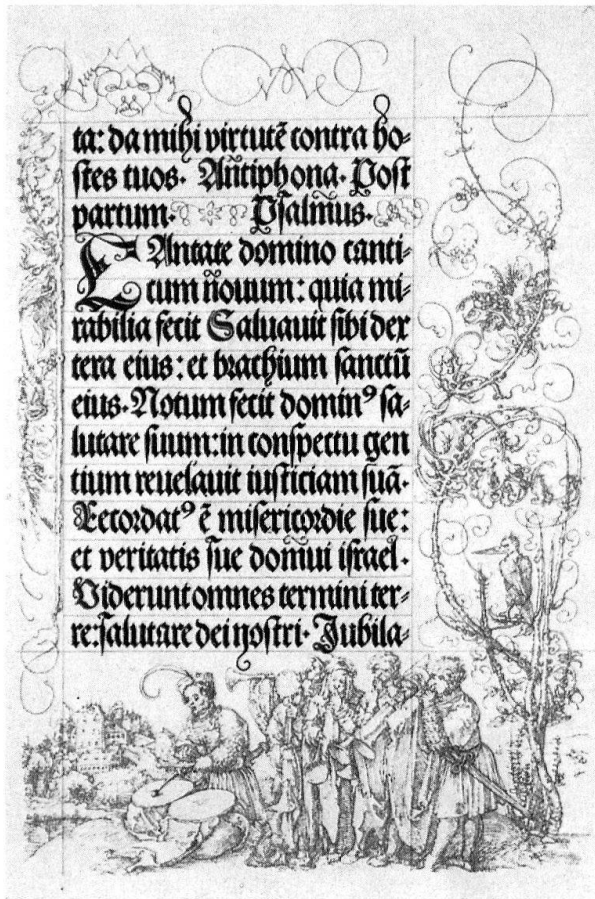 ta: da mihi virtutē contra ho-
ſtes tuos. An̄tiphona. Poſt
partum. Pſalmus.
CAntate domino canti-
cum nouum: quia mi-
rabilia fecit Saluauit ſibi dex
tera eius: et brachium ſanctū
eius. Notum fecit dominꝰ ſa-
lutare ſuum: in conſpectu gen
tium reuelauit iuſticiam ſuā.
Recordatꝰ ē miſericordie ſue:
et veritatis ſue domui iſrael.
Viderunt omnes termini ter-
re: ſalutare dei noſtri. Jubila-